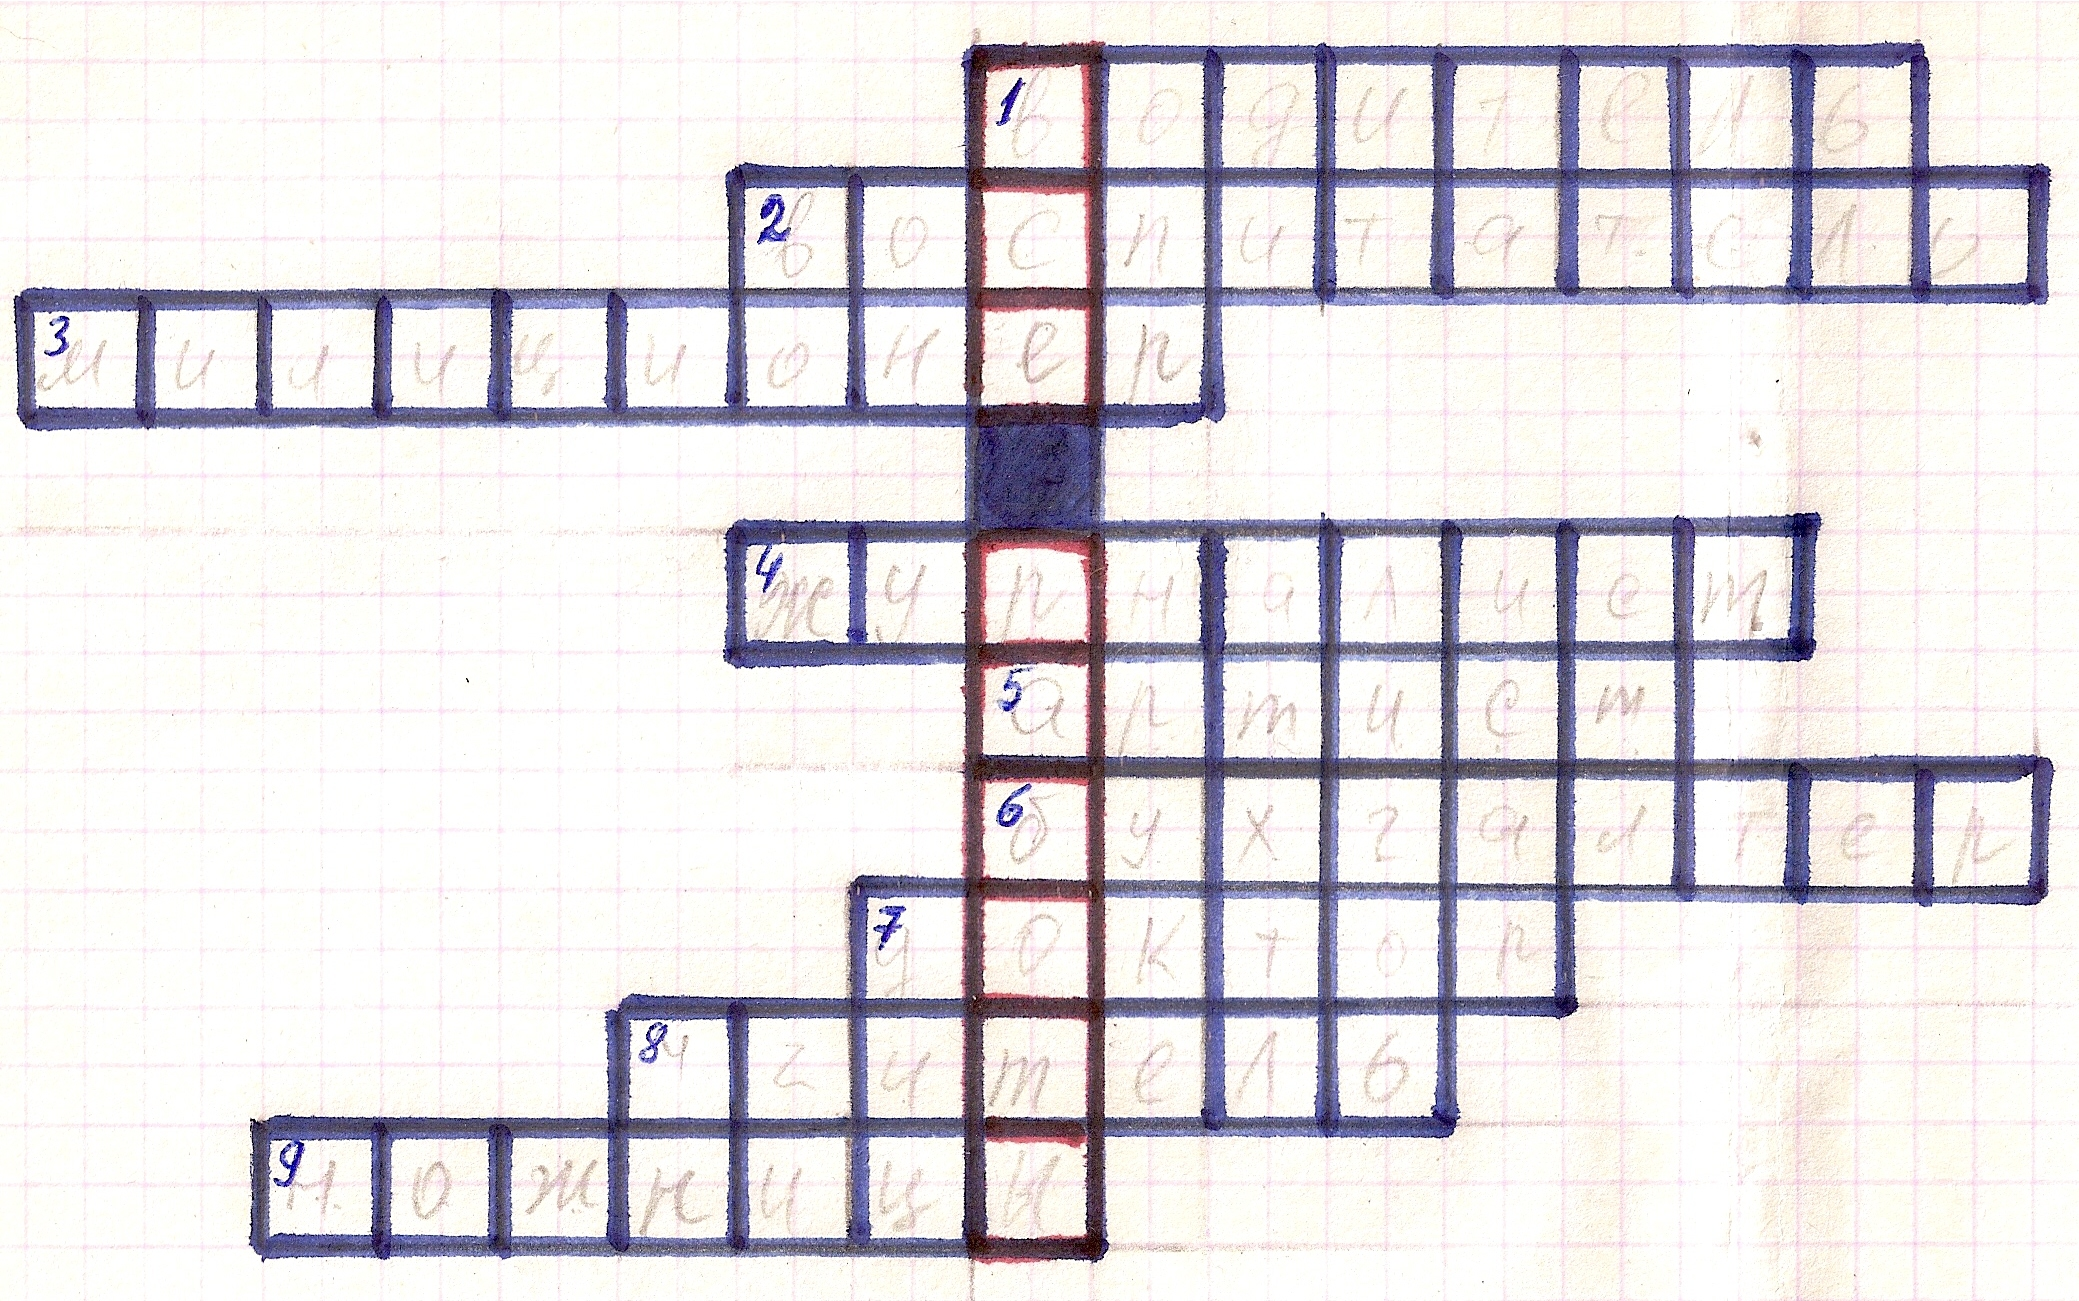 1 водитель
2 воспитатель
3 милиционер
4 журналист
5 артист
6 бухгалтер
7 доктор
8 учитель
9 ножницы